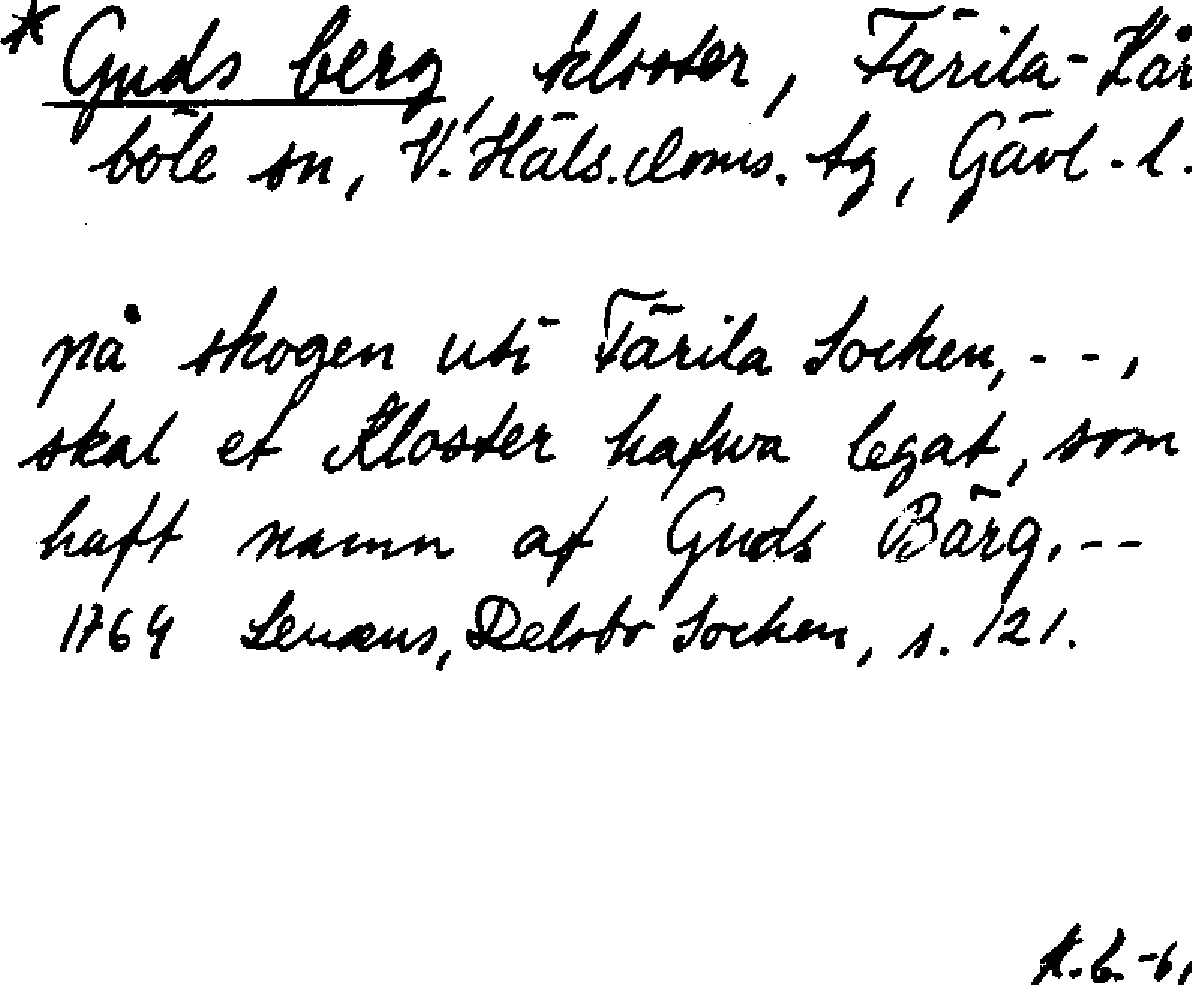 * Guds berg, kloster, Färila-Kår
böle sn, V. Häls. doms. tg, Gävl. l.
på skogen uti Färila Socken, - - ,
skal et Kloster hafwa legat, som
haft namn af Guds Bärg. --
1764 Lenæus, Delsbo Socken, s. 121.